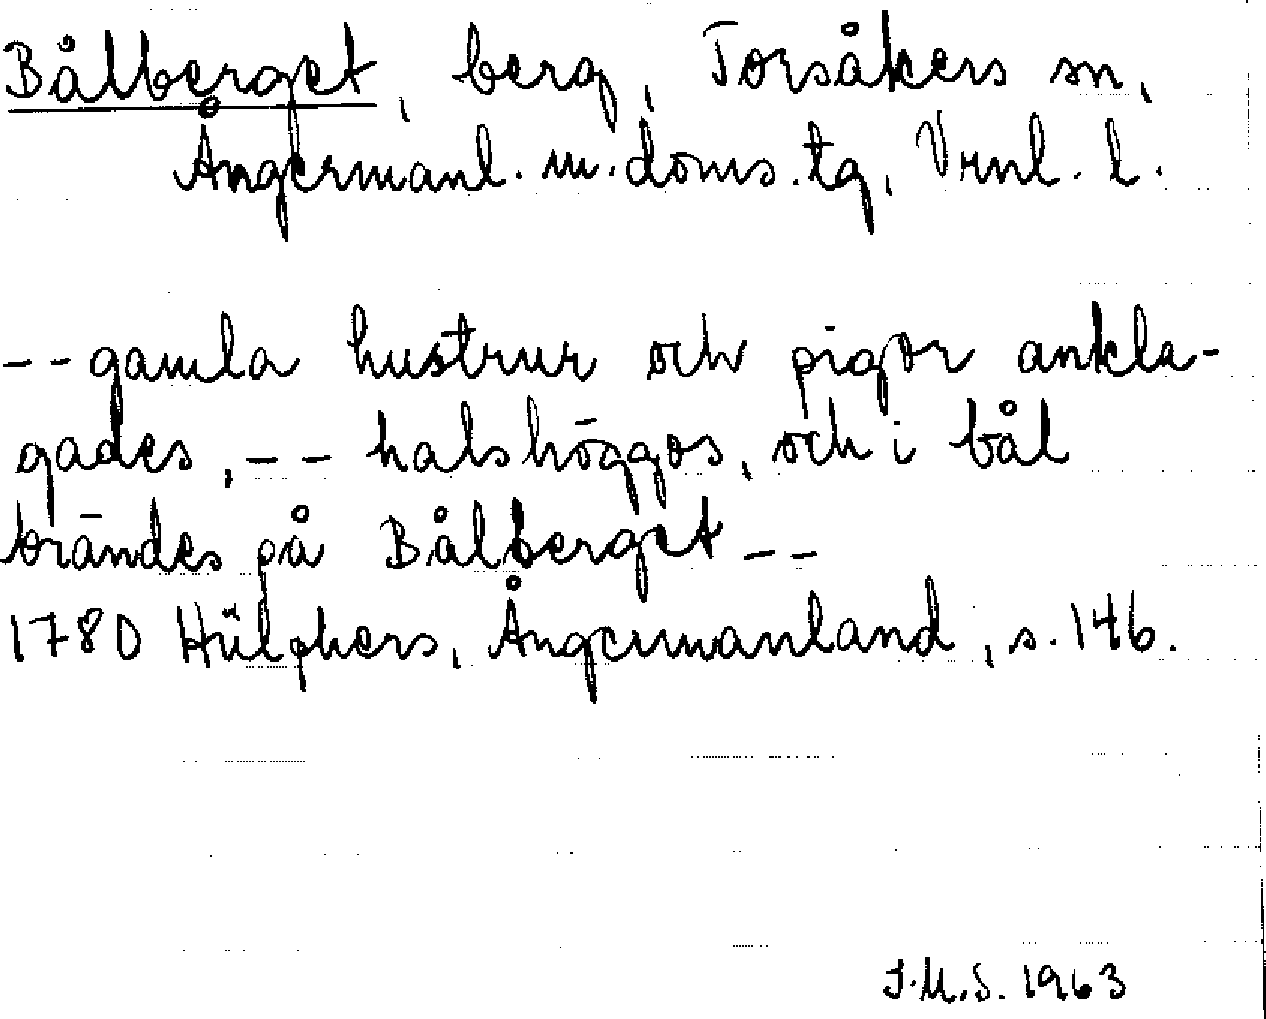 Bålberget, berg, Torsåkers sn,
Ångermanl. m. doms. tg, Vrnl. l.
-- gamla hustrur och pigor ankla-
gades, -- halshöggos, och i bål
brändes på Bålberget --
1780 Hülphers, Ångermanland, s. 146.
I.M.S. 1963